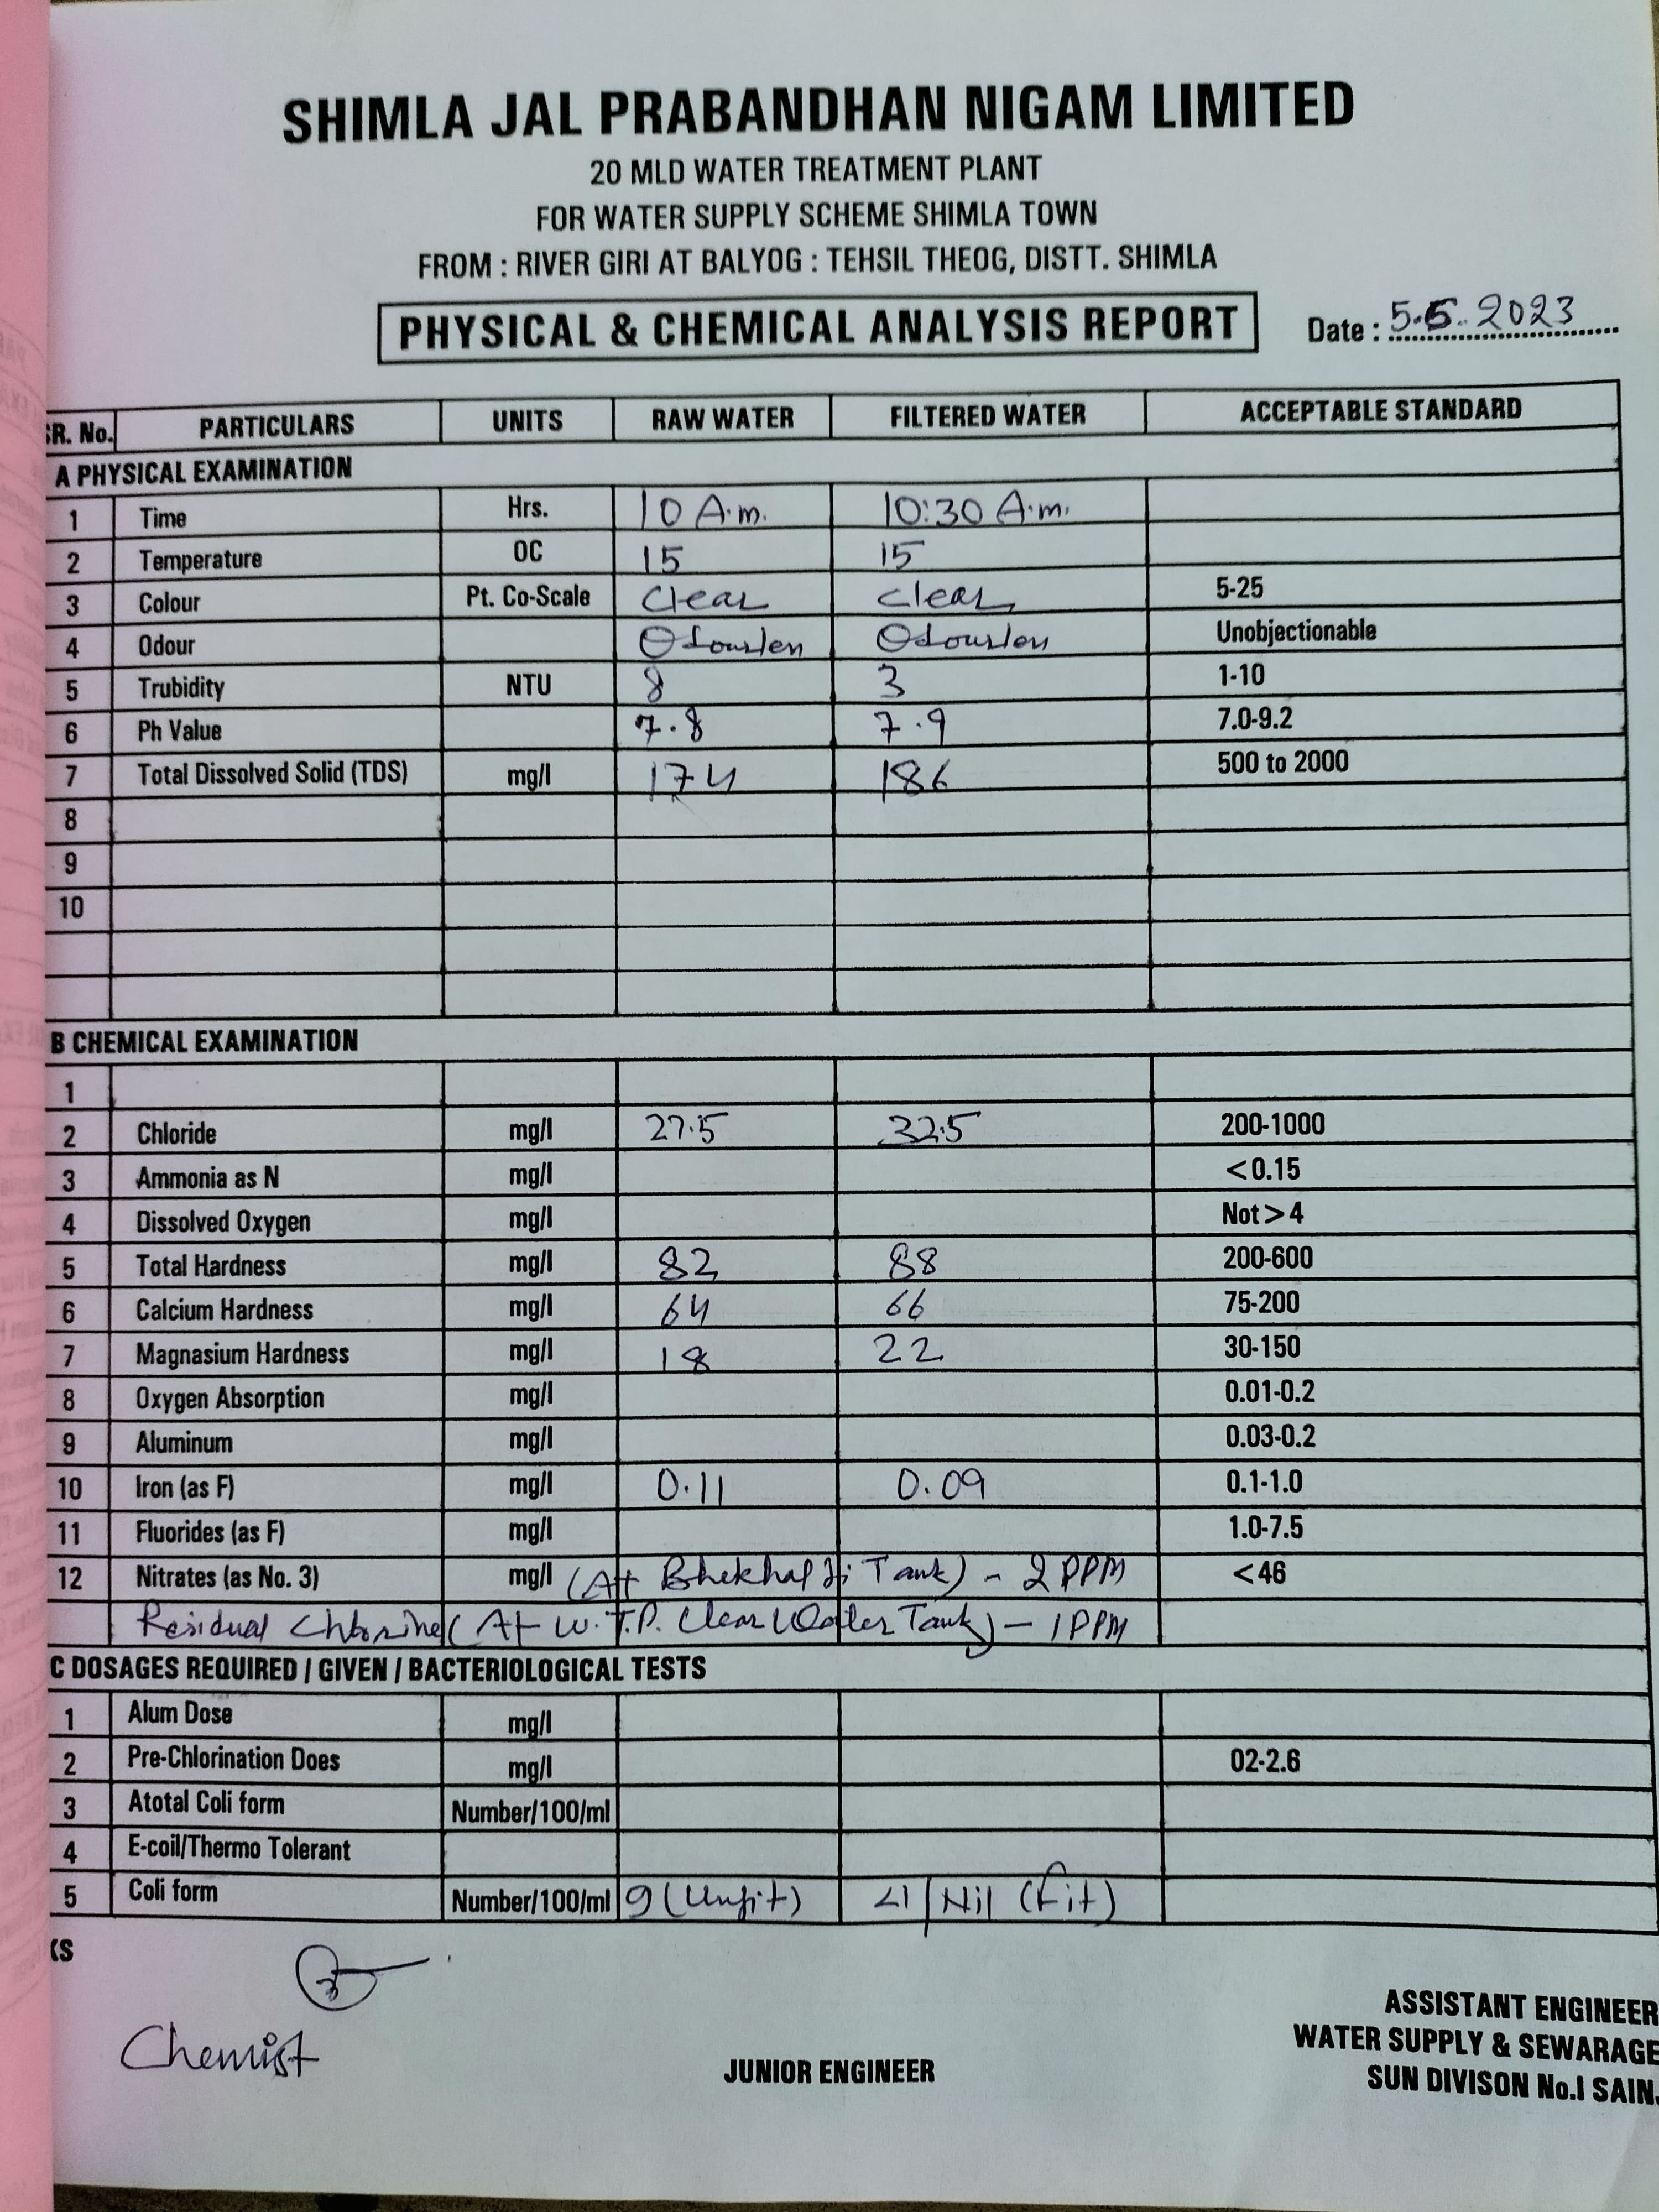 SHIMLA JAL PRABANDHAN NIGAM LIMITED
20 MLD WATER TREATMENT PLANT
FOR WATER SUPPLY SCHEME SHIMLA TOWN
FROM : RIVER GIRI AT BALYOG : TEHSIL THEOG, DISTT. SHIMLA
PHYSICAL & CHEMICAL ANALYSIS REPORT Date : 5.5.2023
SR. No. PARTICULARS UNITS RAW WATER FILTERED WATER ACCEPTABLE STANDARD
A PHYSICAL EXAMINATION
1 Time Hrs. 10 A.m. 10:30 A.m.
2 Temperature OC 15 15
3 Colour Pt. Co-Scale Clear Clear 5-25
4 Odour Odourless Odourless Unobjectionable
5 Trubidity NTU 8 3 1-10
6 Ph Value 7.8 7.9 7.0-9.2
7 Total Dissolved Solid (TDS) mg/l 174 186 500 to 2000
8
9
10
B CHEMICAL EXAMINATION
1
2 Chloride mg/l 27.5 32.5 200-1000
3 Ammonia as N mg/l <0.15
4 Dissolved Oxygen mg/l Not > 4
5 Total Hardness mg/l 82 88 200-600
6 Calcium Hardness mg/l 64 66 75-200
7 Magnasium Hardness mg/l 18 22 30-150
8 Oxygen Absorption mg/l 0.01-0.2
9 Aluminum mg/l 0.03-0.2
10 Iron (as F) mg/l 0.11 0.09 0.1-1.0
11 Fluorides (as F) mg/l 1.0-7.5
12 Nitrates (as No. 3) mg/l (At Tank) - 2 PPM <46
Residual Chlorine (At W.T.P. Clear Water Tank) - 1 PPM
C DOSAGES REQUIRED / GIVEN / BACTERIOLOGICAL TESTS
1 Alum Dose mg/l
2 Pre-Chlorination Does mg/l 02-2.6
3 Atotal Coli form Number/100/ml
4 E-coil/Thermo Tolerant
5 Coli form Number/100/ml 9 (Unfit) <1 / Nil (Fit)
KS
Chemist
JUNIOR ENGINEER
ASSISTANT ENGINEER
WATER SUPPLY & SEWARAGE
SUN DIVISON No.I SAIN.